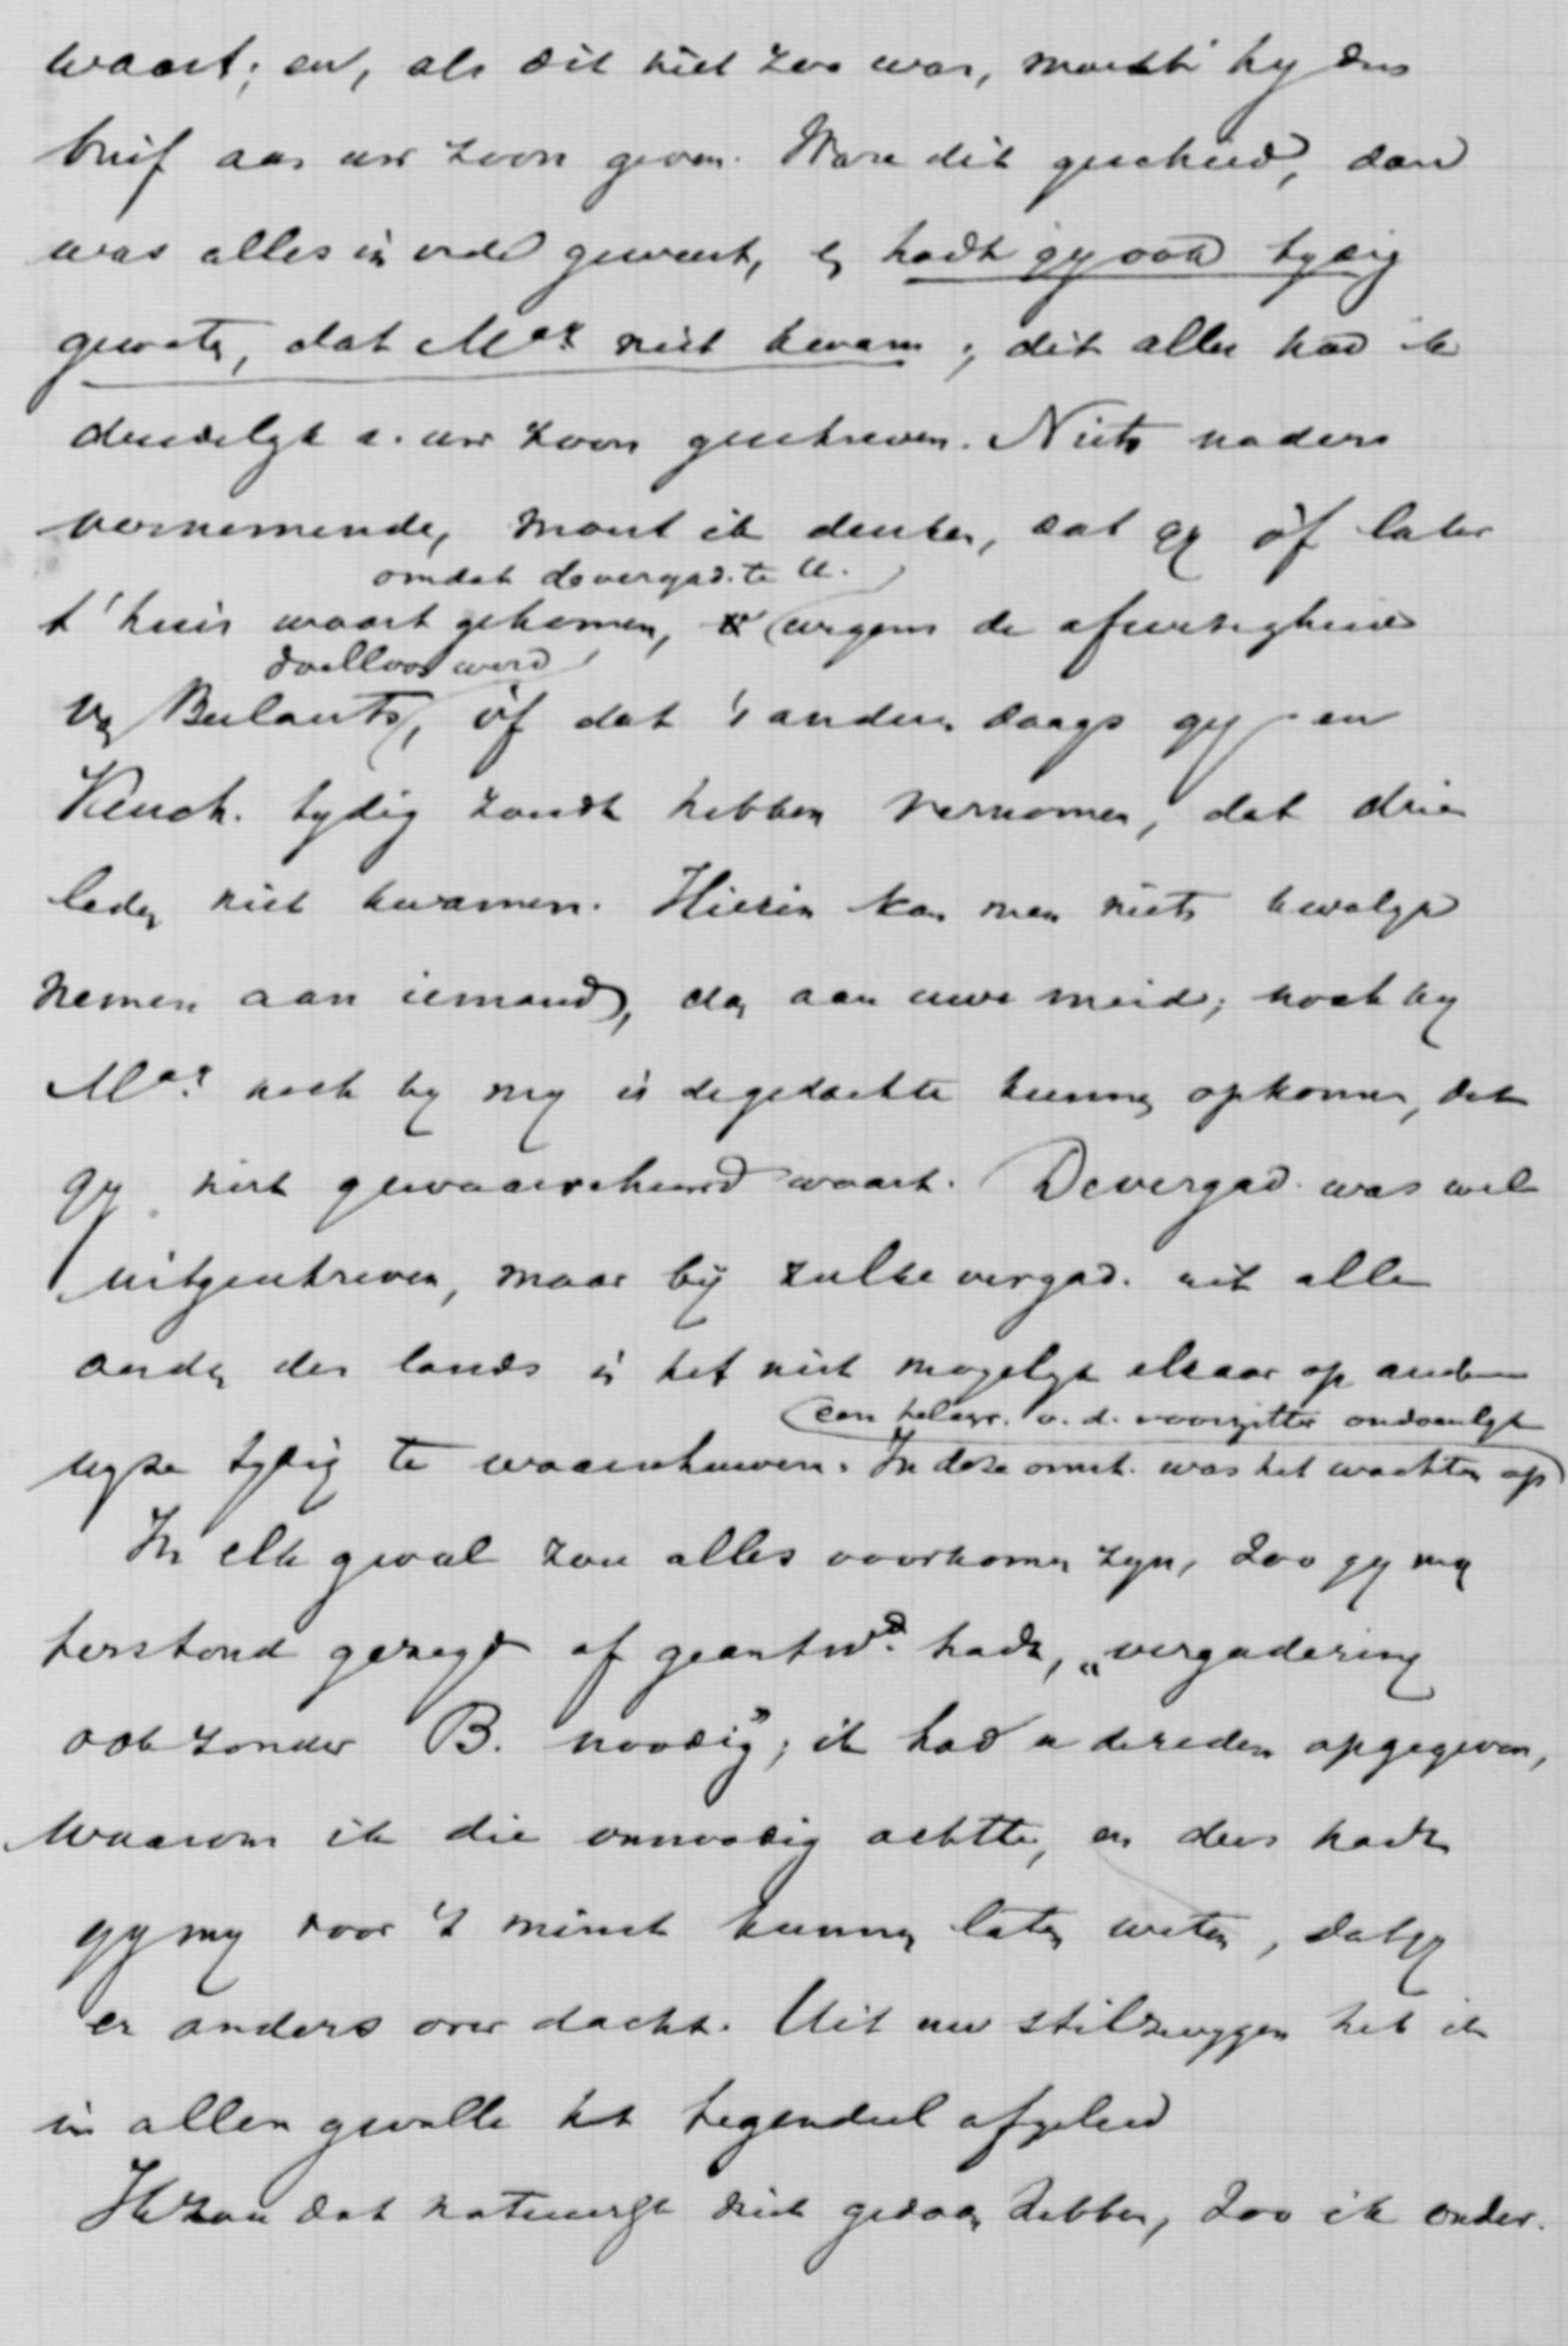 waart; en, als dit niet zoo was, moest hy den
brief aan uw zoon geven. Ware dit geschied, dan
was alles in orde geweest, & hadt gy ook tydig
geweten, dat Mar niet kwam; dit alles had ik
duidelyk a. uw zoon geschreven. Niets naders
vernemende, moest ik denken, dat gy òf later
omdat de vergad. te U.
t'huis waart gekomen, (wegens de afwezigheid
doelloos werd
Beelaerts, òf dat 's anderen daags gy en
Keuch. tydig zoudt hebben vernomen, dat drie
leden niet kwamen. Hierin kan men niets kwalyk
nemen aan iemand, dan aan uwe meid; noch by
Mar noch by my is de gedachte kunnen opkomen, dat
gy niet gewaarschuwd waart. De vergad. was wel
uitgeschreven, maar by zulke vergad. uit alle
oorden des lands is het niet mogelyk elkaar op andere
(een telegr. v. d. voorzitter ondoenlyk
wyze tydig te waarschuwen. In deze omst. was het wachten op
In elk geval zou alles voorkomen zyn, zoo gy my
terstond gezegd of geantwd. hadt, „vergadering
ook zonder B. noodig"; ik had u de reden opgegeven,
waarom ik die onnoodig achtte, en dus hadt
gy my voor 't minst kunnen laten weten, dat gy
er anders over dacht. Uit uw stilzwygen heb ik
in allen gevalle het tegendeel afgeleid
Ik zou dat natuurlyk niet gedaan hebben, zoo ik onder-